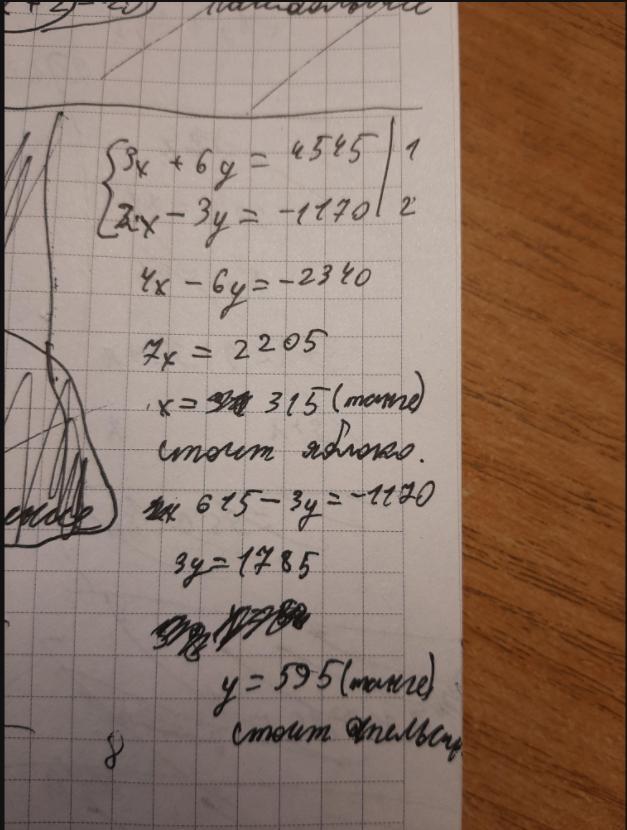 {3x + 6y = 4545 | 1
2x - 3y = -1170 | 2
4x - 6y = -2340
7x = 2205
x = 315 (танге)
стоит яблоко.
615 - 3y = -1170
3y = 1785
y = 595 (танге)
стоит апельсин